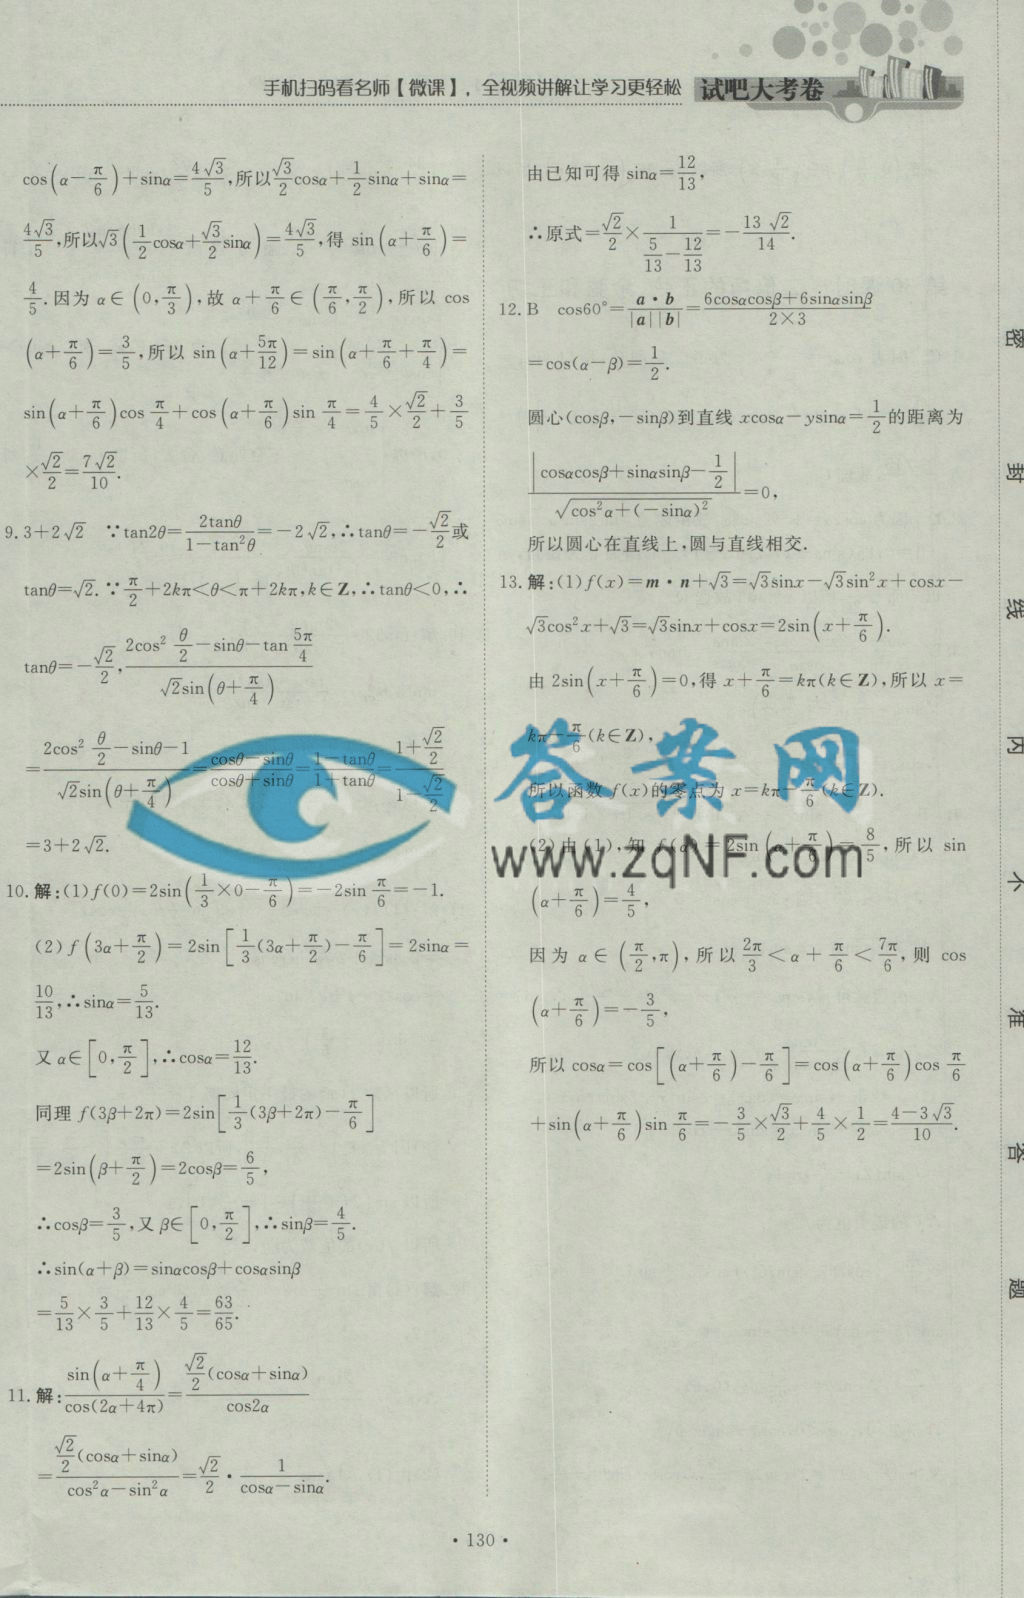 手机扫码看名师【微课】，全视频讲解让学习更轻松 试吧大考卷
cos(α-π/6)+sinα=4√3/5,所以√3/2cosα+1/2sinα+sinα=
4√3/5,所以√3(1/2cosα+√3/2sinα)=4√3/5,得 sin(α+π/6)=
4/5.因为 α∈(0,π/3),故 α+π/6∈(π/6,π/2),所以 cos
(α+π/6)=3/5,所以 sin(α+5π/12)=sin(α+π/6+π/4)=
sin(α+π/6)cos π/4+cos(α+π/6)sin π/4=4/5×√2/2+3/5
×√2/2=7√2/10.
9.3+2√2 ∵tan2θ=2tanθ/(1-tan²θ)=-2√2,∴tanθ=-√2/2或
tanθ=√2.∵π/2+2kπ<θ<π+2kπ,k∈Z,∴tanθ<0,∴
tanθ=-√2/2,(2cos² θ/2-sinθ-tan 5π/4)/(√2sin(θ+π/4))
=(2cos² θ/2-sinθ-1)/(√2sin(θ+π/4))=(cosθ-sinθ)/(cosθ+sinθ)=(1-tanθ)/(1+tanθ)=(1+√2/2)/(1-√2/2)
=3+2√2.
10.解:(1)f(0)=2sin(1/3×0-π/6)=-2sin π/6=-1.
(2)f(3α+π/2)=2sin[1/3(3α+π/2)-π/6]=2sinα=
10/13,∴sinα=5/13.
又 α∈[0,π/2],∴cosα=12/13.
同理 f(3β+2π)=2sin[1/3(3β+2π)-π/6]
=2sin(β+π/2)=2cosβ=6/5,
∴cosβ=3/5,又 β∈[0,π/2],∴sinβ=4/5.
∴sin(α+β)=sinαcosβ+cosαsinβ
=5/13×3/5+12/13×4/5=63/65.
11.解:sin(α+π/4)/cos(2α+4π)=√2/2(cosα+sinα)/cos2α
=√2/2(cosα+sinα)/(cos²α-sin²α)=√2/2·1/(cosα-sinα).
由已知可得 sinα=12/13,
∴原式=√2/2×1/(5/13-12/13)=-13√2/14.
12.B cos60°=a·b/|a||b|=(6cosαcosβ+6sinαsinβ)/(2×3)
=cos(α-β)=1/2.
圆心(cosβ,-sinβ)到直线 xcosα-ysinα=1/2的距离为
|cosαcosβ+sinαsinβ-1/2|/√(cos²α+(-sinα)²)=0,
所以圆心在直线上,圆与直线相交.
13.解:(1)f(x)=m·n+√3=√3sinx-√3sin²x+cosx-
√3cos²x+√3=√3sinx+cosx=2sin(x+π/6).
由 2sin(x+π/6)=0,得 x+π/6=kπ(k∈Z),所以 x=
kπ-π/6(k∈Z),
所以函数 f(x)的零点为 x=kπ-π/6(k∈Z).
(2)由(1),知 f(α)=2sin(α+π/6)=8/5,所以 sin
(α+π/6)=4/5,
因为 α∈(π/2,π),所以 2π/3<α+π/6<7π/6,则 cos
(α+π/6)=-3/5,
所以 cosα=cos[(α+π/6)-π/6]=cos(α+π/6)cos π/6
+sin(α+π/6)sin π/6=-3/5×√3/2+4/5×1/2=(4-3√3)/10.
答案网
www.zqNF.com
密 封 线 内 不 准 答 题
·130·